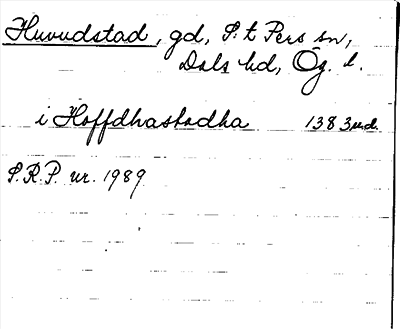 Huvudstad, gd, S:t Pers sn,
Dals hd, Ög. l.
i Hoffdhastadha 1383 u.d.
S.R.P. nr. 1989